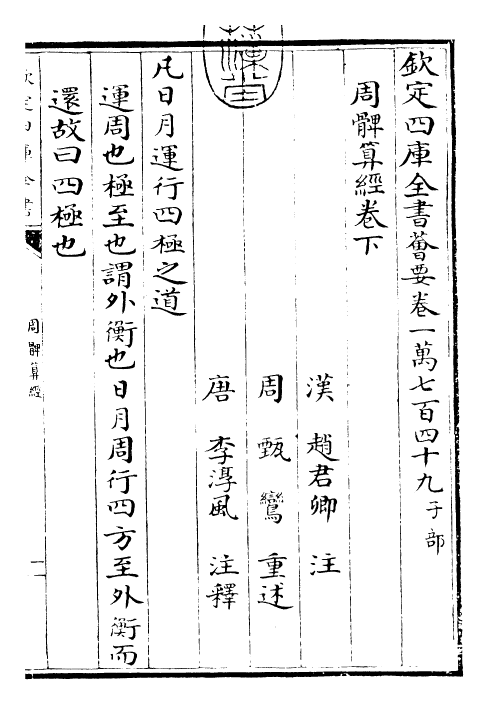 欽定四庫全書薈要卷一萬七百四十九子部
周髀算經卷下
漢 趙君卿 注
周 甄鸞 重述
唐 李淳風 注釋
凡日月運行四極之道
運周也極至也謂外衡也日月周行四方至外衡而
還故曰四極也
欽定四庫全書
周髀算經